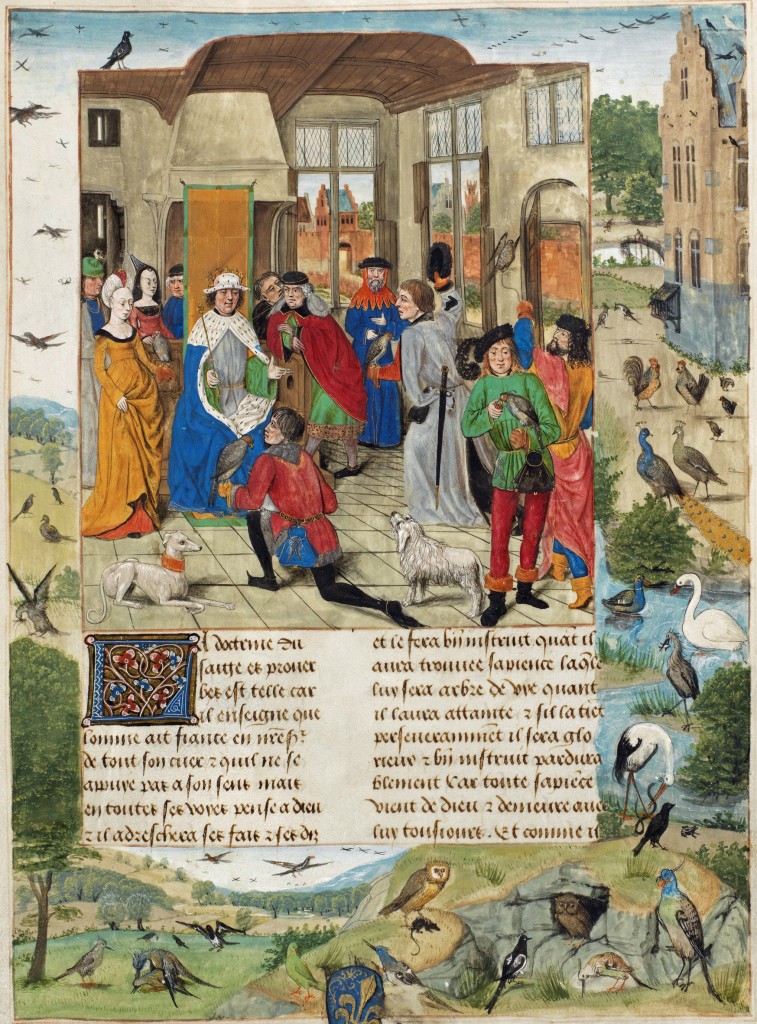 La doctrine du
saige es prouer
bes est telle car
il enseigne que
lomme ait fiance en
de tout son cuer ⁊ quil ne se
apuye pas a son sens mais
en toutes ses voyes pense a dieu
⁊ il adreschera ses fais ⁊ ses diz
et le fera bñ instruit quāt il
aura trouuee sapience laqͤle
luy sera arbre de vye quant
il laura attainte ⁊ sil la tiēt
perseverammēt il sera glo
rieux ⁊ bñ instruit pardura
blement Car toute sapiēce
vient de dieu ⁊ demeure auec
luy tousiours. Et comme il